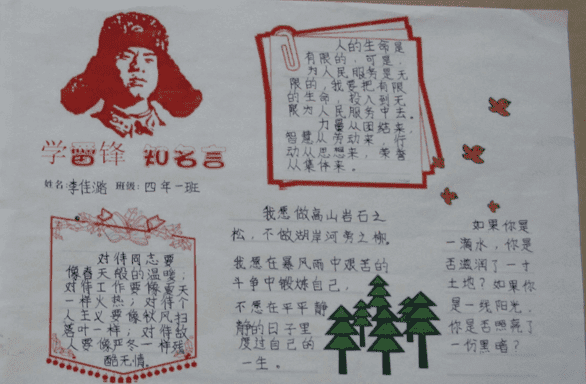 学雷锋 知名言
姓名:李佳潞 班级:四年一班
对待同志要
像春天般的温暖,
对待工作要像夏天
一样火热;对待个
人主义要像秋风扫
落叶一样;对待敌
人要像严冬一样残
酷无情。
人的生命是
有限的,可是,
为人民服务是无
限的,我要把有限
的生命,投入到无
限为人民服务中去。
力量从团结来,
智慧从劳动来,行
动从思想来,荣誉
从集体来。
我愿做高山岩石之
松,不做湖岸河旁之柳。
我愿在暴风雨中艰苦的
斗争中锻炼自己,
不愿在平平静
静的日子里
度过自己的
一生。
如果你是
一滴水,你是
否滋润了一寸
土地?如果你
是一线阳光,
你是否照亮了
一份黑暗?